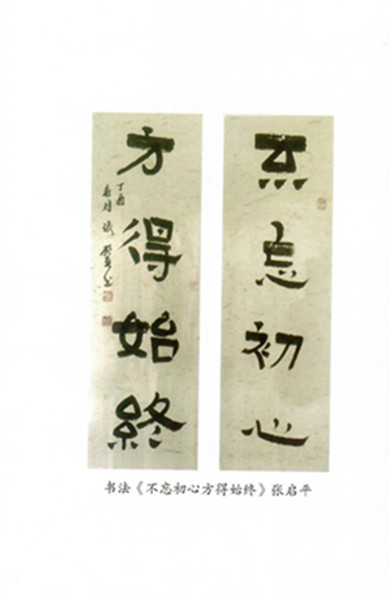 不忘初心
方得始终
丁酉
书法《不忘初心方得始终》张启平